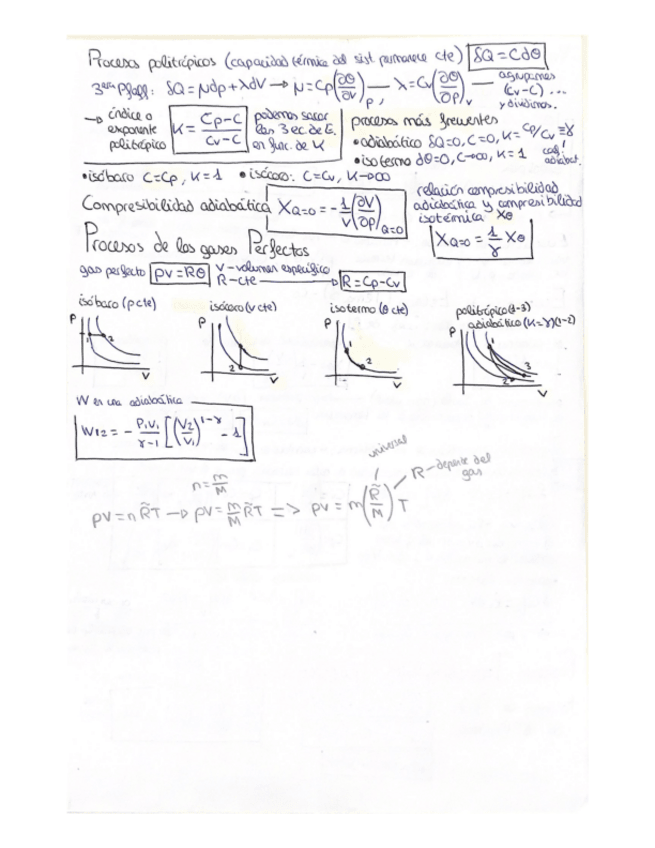 Procesos politrópicos (capacidad térmica del sist. permanece cte) δQ = Cdθ
3era Pfaff: δQ = μdp + λdV → μ = Cp(∂θ/∂v)p, — λ = Cv(∂θ/∂p)v — agrupamos (Cv-C) ... y dividimos.
→ índice o exponente politrópico K = Cp-C / Cv-C podemos sacar las 3 ec. de E. en func. de K
procesos más frecuentes
• adiabático δQ=0, C=0, K= Cp/Cv ≡ γ coef. adiabat.
• isotermo dθ=0, C→∞, K=1
• isóbaro C=Cp, K=1 • isócoro: C=Cv, K→∞
Compresibilidad adiabática X Q=0 = -1/V (∂V/∂p) Q=0
relación compresibilidad adiabática y compresibilidad isotérmica Xθ
X Q=0 = 1/γ Xθ
Procesos de los gases Perfectos
gas perfecto pv = Rθ V - volumen específico
R - cte → R = Cp - Cv
isóbaro (p cte) isócoro (v cte) isotermo (θ cte) politrópico (1-3)
adiabático (K=γ)(1-2)
P 1 2 V
P 2 V
P 1 2 V
P 1 2 3 V
W en una adiabática
W12 = - P1V1/γ-1 [(V2/V1)^1-γ - 1]
universal
R - depende del gas
n = m/M
pV = n R̃T → pV = m/M R̃T => pV = m(R̃/M) T